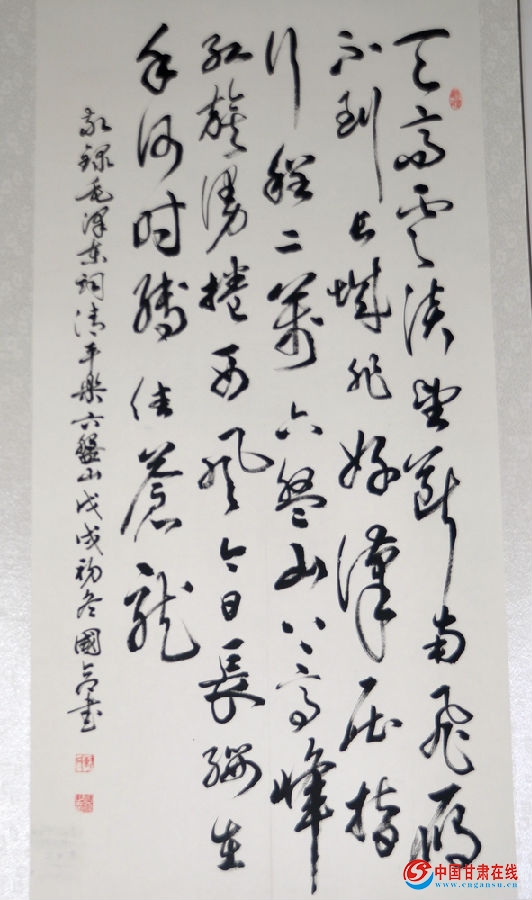 天高雲淡望斷南飛雁
不到長城非好漢屈指
行程二萬六盤山上高峰
紅旗漫捲西風今日長纓在
手何時縛住蒼龍
敬錄毛澤東詞清平樂六盤山戊戌初冬國書
中国甘肃在线
www.cngansu.cn